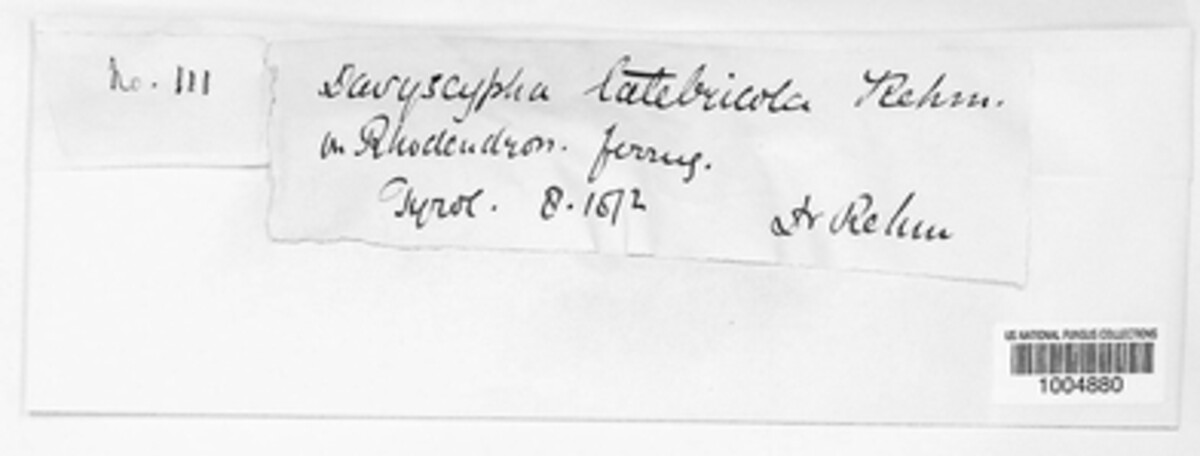 No. III
Dasyscypha latebricola Rehm.
in Rhodendron. ferrug.
Tyrol. 8.1872
Dr Rehm
US NATIONAL FUNGUS COLLECTIONS
1004880